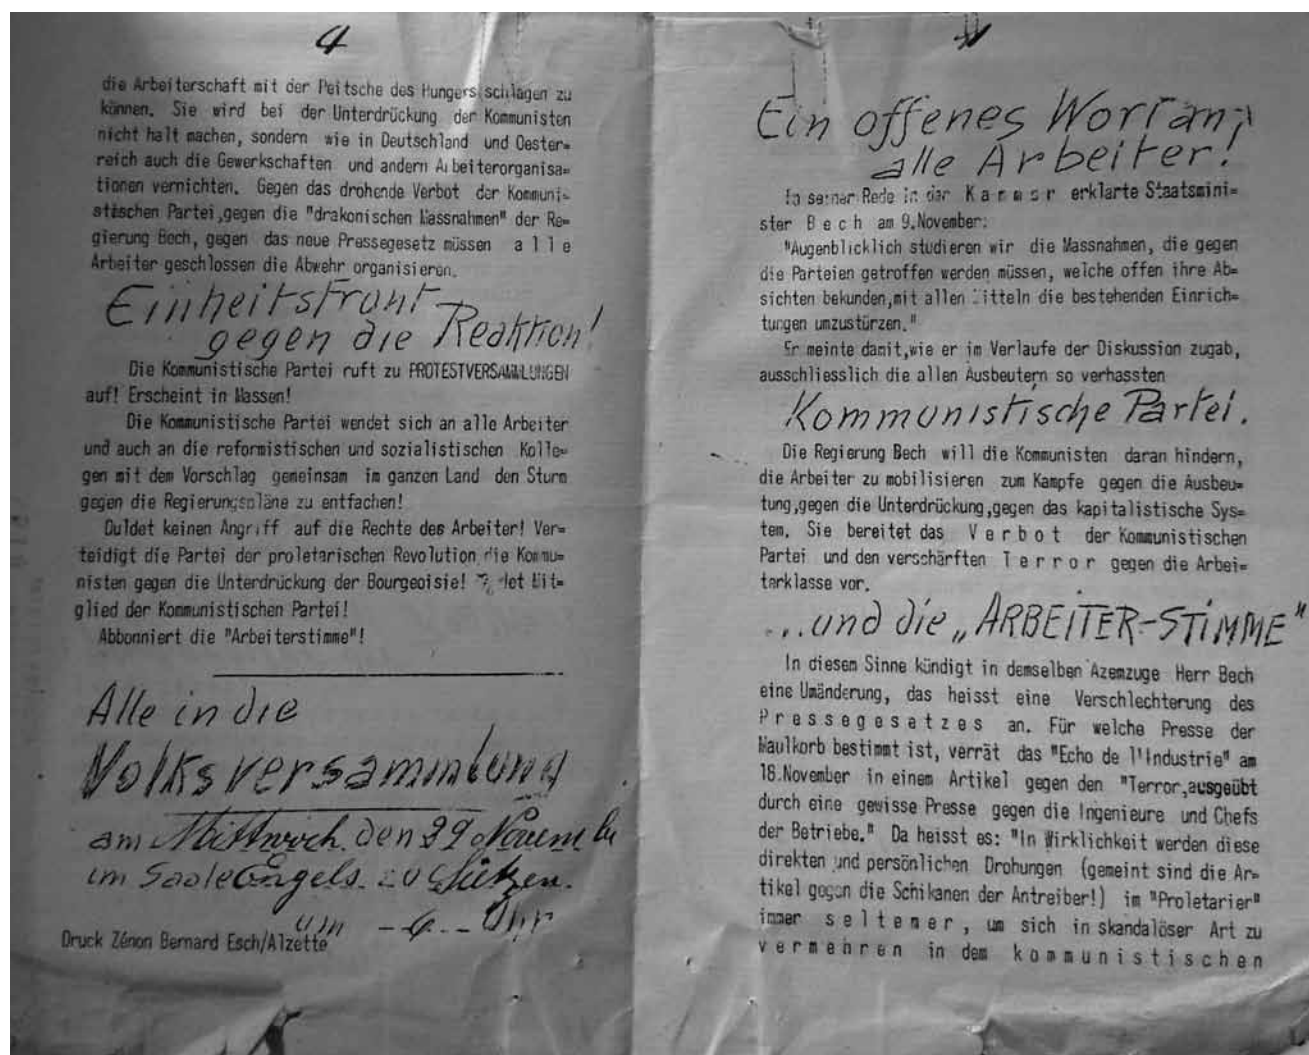 4
die Arbeiterschaft mit der Peitsche des Hungers schlagen zu
können. Sie wird bei der Unterdrückung der Kommunisten
nicht halt machen, sondern wie in Deutschland und Oester=
reich auch die Gewerkschaften und andern Arbeiterorganisa=
tionen vernichten. Gegen das drohende Verbot der Kommuni=
stischen Partei,gegen die "drakonischen Massnahmen" der Re=
gierung Bech, gegen das neue Pressegesetz müssen a l l e
Arbeiter geschlossen die Abwehr organisieren.
Einheitsfront
gegen die Reaktion!
Die Kommunistische Partei ruft zu PROTESTVERSAMMLUNGEN
auf! Erscheint in Massen!
Die Kommunistische Partei wendet sich an alle Arbeiter
und auch an die reformistischen und sozialistischen Kolle=
gen mit dem Vorschlag gemeinsam im ganzen Land den Sturm
gegen die Regierungspläne zu entfachen!
Duldet keinen Angriff auf die Rechte des Arbeiter! Ver=
teidigt die Partei der proletarischen Revolution die Kommu=
nisten gegen die Unterdrückung der Bourgeoisie! Mit=
glied der Kommunistischen Partei!
Abbonniert die "Arbeiterstimme"!
Alle in die
Volksversammlung
am Mittwoch den 29 November
im Saale Engels zu
um Uhr
Druck Zénon Bernard Esch/Alzette
Ein offenes Wort an
alle Arbeiter!
In seiner Rede in der K a m m e r erklärte Staatsmini=
ster B e c h am 9.November:
"Augenblicklich studieren wir die Massnahmen, die gegen
die Parteien getroffen werden müssen, welche offen ihre Ab=
sichten bekunden,mit allen Mitteln die bestehenden Einrich=
tungen umzustürzen."
Er meinte damit,wie er im Verlaufe der Diskussion zugab,
ausschliesslich die allen Ausbeutern so verhassten
Kommunistische Partei.
Die Regierung Bech will die Kommunisten daran hindern,
die Arbeiter zu mobilisieren zum Kampfe gegen die Ausbeu=
tung,gegen die Unterdrückung,gegen das kapitalistische Sys=
tem. Sie bereitet das V e r b o t der Kommunistischen
Partei und den verschärften T e r r o r gegen die Arbei=
terklasse vor.
...und die „ARBEITER-STIMME"
In diesem Sinne kündigt in demselben Azemzuge Herr Bech
eine Umänderung, das heisst eine Verschlechterung des
P r e s s e g e s e t z e s an. Für welche Presse der
Maulkorb bestimmt ist, verrät das "Echo de l'Industrie" am
18.November in einem Artikel gegen den "Terror,ausgeübt
durch eine gewisse Presse gegen die Ingenieure und Chefs
der Betriebe." Da heisst es: "In Wirklichkeit werden diese
direkten und persönlichen Drohungen (gemeint sind die Ar=
tikel gegen die Schikanen der Antreiber!) im "Proletarier"
immer s e l t e n e r , um sich in skandalöser Art zu
v e r m e h r e n in dem k o m m u n i s t i s c h e n